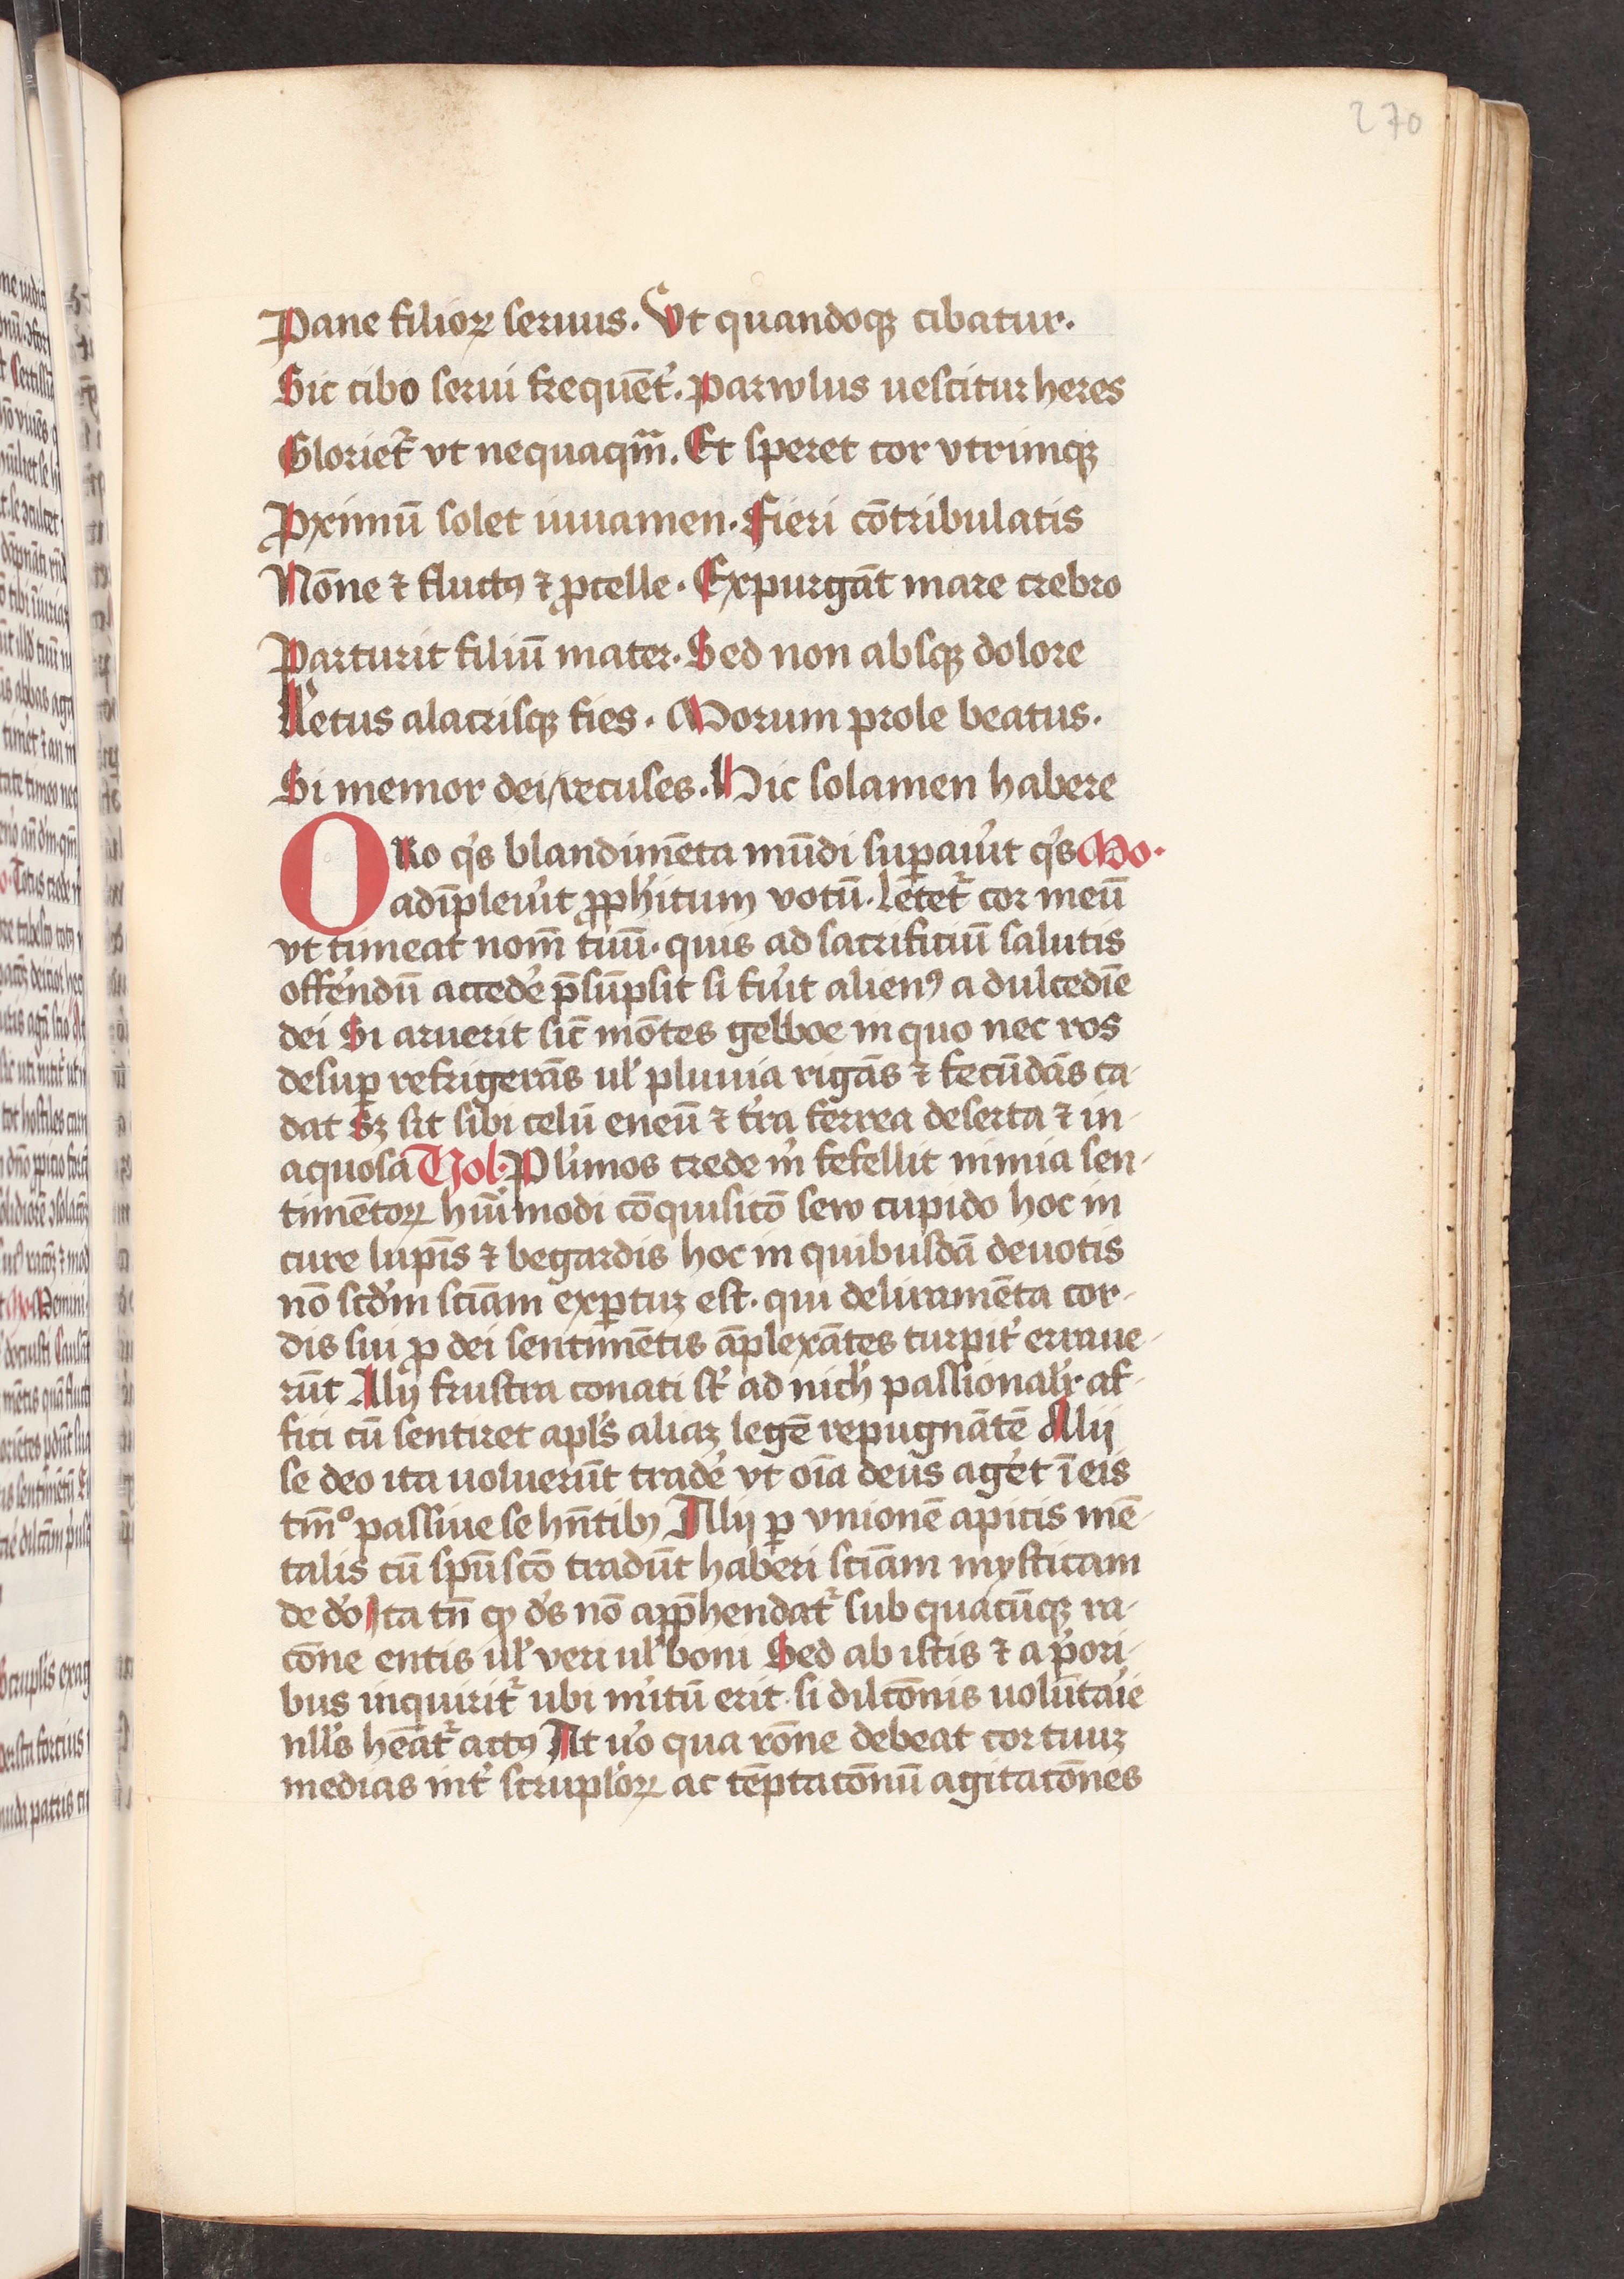 270
Pane filioꝝ seruus. Vt quandoqꝫ cibatur.
Sic cibo serui frequēt᷑. Paruulus uescitur heres
Gloriet᷑ vt nequaqm̄. Et speret cor vtrimqꝫ
Ꝓximū solet iuuamen. Fieri cōtribulatis
Nōne ⁊ fluctꝰ ⁊ ꝓcelle. Expurgāt mare crebro
Parturit filiū mater. Sed non absqꝫ dolore
Letus alacrisqꝫ fies. Morum prole beatus.
Si memor dei/recuses. Hic solamen habere
ORo q̓s blandimēta mūdi suꝑaűit q̓s Mo.
adīpleűit ꝓph̓itum votū. Lētet᷑ cor meū
vt timeat nom̄ tuū. quis ad sacrificiū salutis
offe̓ndū accede̓ p̄sūpsit si fűit alienꝰ a dulcedīe
dei Si aruerit sic̄ mōtes gelboe in quo nec ros
desuꝑ refrigerās ul̓ pluuia rigās ⁊ fecūdās ca-
dat Sꝫ sit sibi celū eneū ⁊ t̓ra ferrea deserta ⁊ in-
aquosa Vol. Pl̓imos crede m̓ fefellit nimia sen-
timētoꝝ hui̓modi cōquisitō sew cupido hoc in
ture lupīs ⁊ begardis hoc in quibusdā deuotis
nō scd̓m sciām exꝑtuꝫ est. qui deliramēta cor-
dis sui ꝓ dei sentimētis āplexātes turpit̓ erraue-
rūt Alij frustra conati st̄ ad nich̓ passional̓r af-
fici cū sentiret apl̓s aliaꝫ legē repugnātē Alij
se deo ita uoluerūt trade̓ vt oīa deus age̓t ī eis
tm̄ᵒ passiue se hn̄tibꝰ Alij ꝑ vnionē apicis mē-
talis cū spū scō tradūt haberi sciām mysticam
de d̓o Ita tn̄ ꝙ d̓s nō app̄hendat᷑ sub quacūqꝫ ra-
cōne entis ul̓ veri ul̓ boni Sed ab istis ⁊ a p̓ori-
bus inquirit᷑ ubi m̓itū erit. si dilcōnis uolūtaīe
nll̓s heāt᷑ actꝰ At űo qua rōne debeat cor tuuꝫ
medias int̓ scrupl̓oꝝ ac tēptacōnū agitacōnes